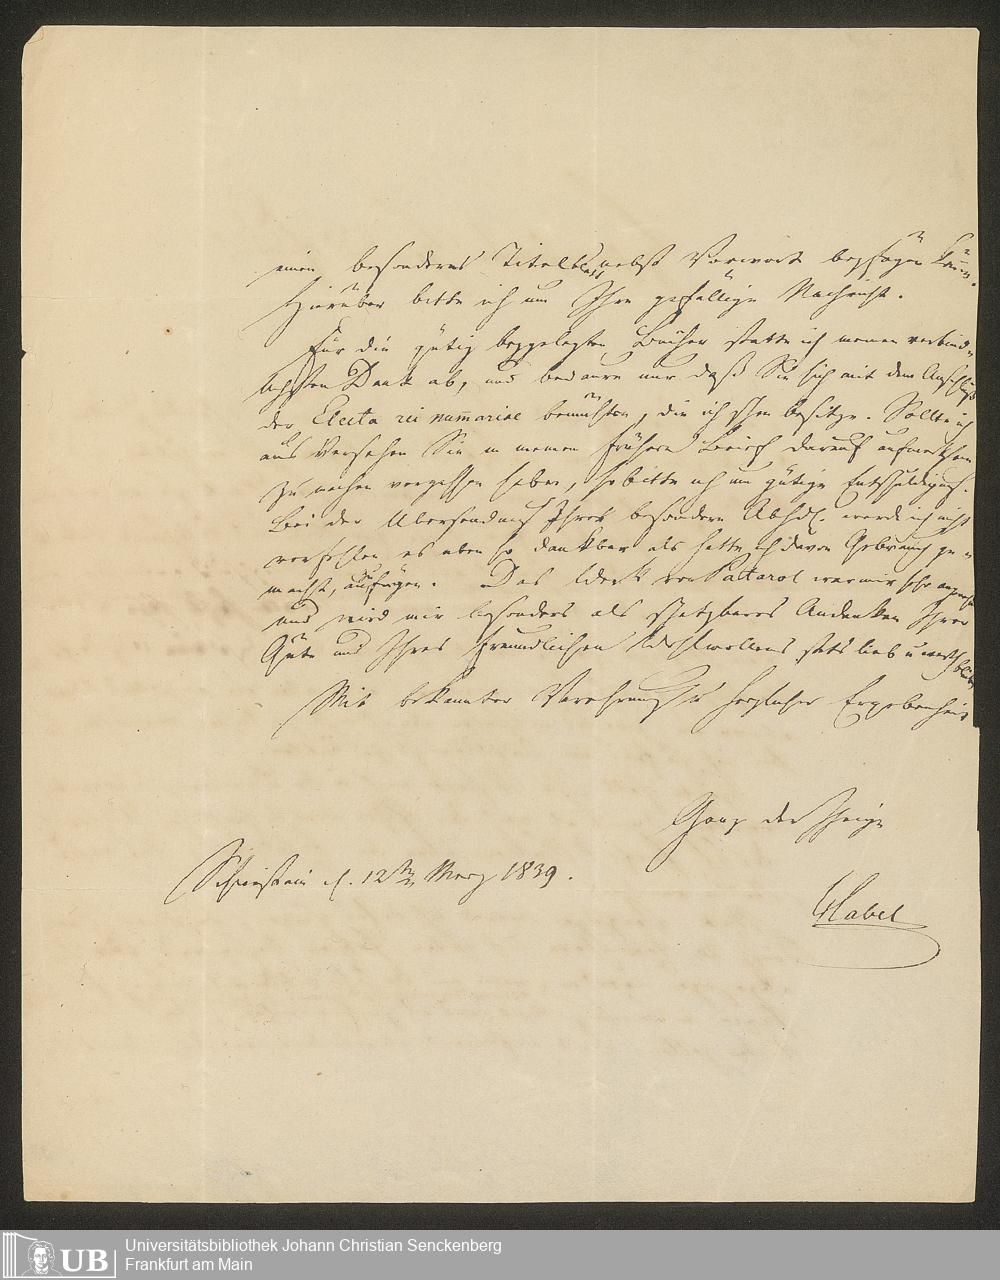 einen besonderes Titelblatt nebst Vorwort beyfügen können.
Hierüber bitte ich um Ihre gefällige Nachricht.
Für die gütig beygelegten Bücher statte ich meinen verbind-
lichsten Dank ab, und bedaure nur daß Sie sich mit dem
der Electa rei nummariae bemühten, die ich schon besitze. Sollte ich
aus Versehen Sie in meinem frühern Brief darauf aufmerksam
zu machen vergessen haben, so bitte ich um gütige Entschuldigung.
Bei der Übersendung Ihrer besondern Abhdl. werde ich nicht
verfehlen es eben so dankbar als hätte ich davon Gebrauch ge-
macht, zufügen. Das Werk von Patarol war mir sehr
und wird mir besonders als schätzbares Andenken Ihrer
Güte und Ihres freundlichen Wohlwollens stets lieb u werth bleiben
Mit bekannter Verehrung u herzlicher Ergebenheit
Ganz der Ihrige
Schierstein d. 12ten Merz 1839.
Habel
UB
Universitätsbibliothek Johann Christian Senckenberg
Frankfurt am Main